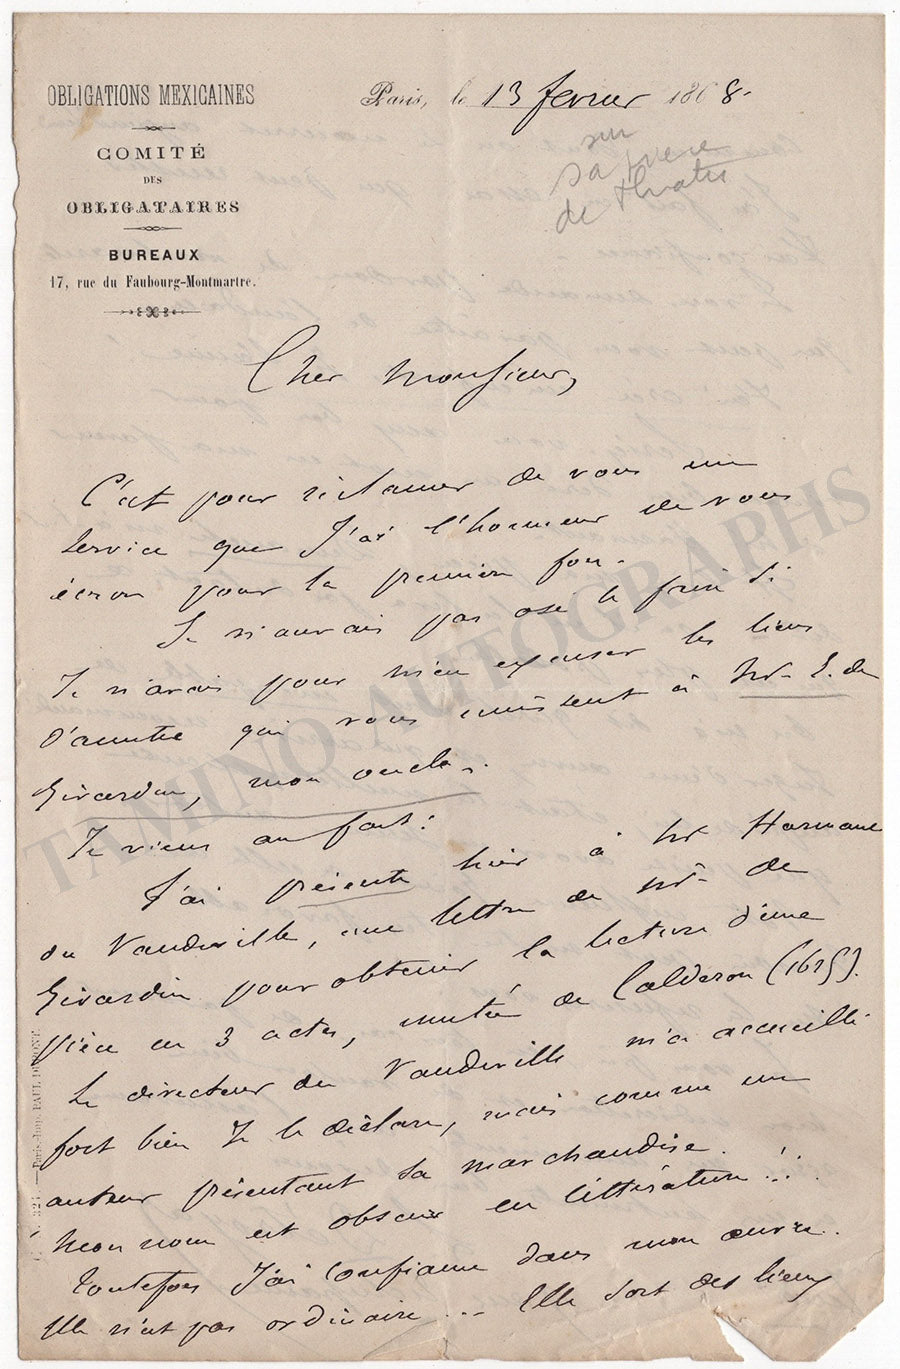 OBLIGATIONS MEXICAINES
COMITÉ
DES
OBLIGATAIRES
BUREAUX
17, rue du Faubourg-Montmartre.
Paris, le 13 fevrier 1868.
sur
sa piece
de theatre
Cher Monsieur,
C'est pour réclamer de vous un
service que J'ai l'honneur de vous
écrire pour la premiere fois.
Je n'aurais pas osé le faire si
Je n'avais pour m'en excuser les liens
d'amitié qui vous unissent à Mr E. de
Girardin, mon oncle.
Je viens au fait:
J'ai présenté hier à Mr Harmant
du Vaudeville, une lettre de Mr de
Girardin pour obtenir la lecture d'une
pièce en 3 actes, imitée de Calderon (1635).
Le directeur du Vaudeville m'a accueilli
fort bien Je le déclare, mais comme un
auteur présentant sa marchandise.
Mon nom est obscur en littérature !!!
Toutefois J'ai confiance dans mon œuvre.
Elle n'est pas ordinaire ... Elle sort des lieux
Paris-Imp. PAUL DUPONT.
TAMINO AUTOGRAPHS